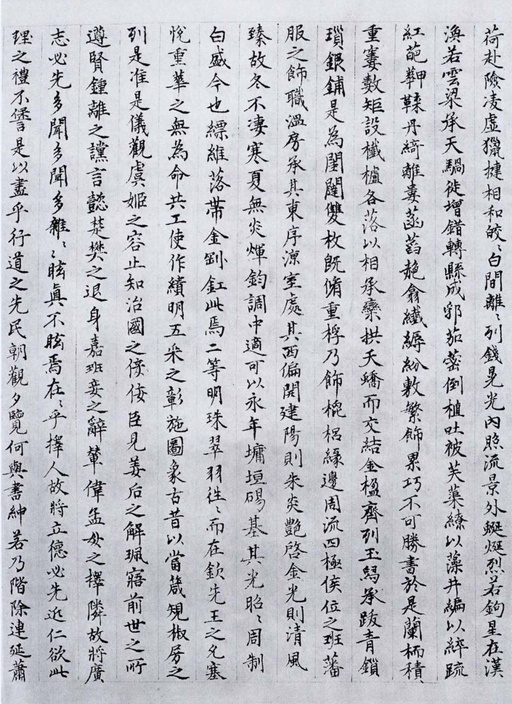 荷赴險凌虛獵捷相和皎〻白間離〻列錢晃光內照流景外烻烈若鉤星在漢
渙若雲梁承天騧徙增錯轉縣成郛茄蔤倒植吐被芙蕖繚以藻井編以綷疏
紅葩丹綺離婁菡萏赩翕纖縟紛敷繁飾累巧不可勝書於是蘭栭積
重窶數矩設櫼櫨各落以相承欒拱夭蟜而交結金楹齊列玉舄承跋青鎖
瑣銀鋪是為閨闥雙枚既脩重桴乃飾梠緣邊周流四極侯位之班藩
服之飾職溫房承其東序涼室處其西偏開建陽則朱炎豔啓金光則清風
臻故冬不淒寒夏無炎燀鈞調中適可以永年墉垣碭基其光昭〻周制
白盛今也縹維落帶金釧釭此焉二等明珠翠羽往〻而在欽先王之允塞
悅重華之無為命共工使作繢明五采之彰施圖象古昔以當箴規椒房之
列是准是儀觀虞姬之容止知治國之佞臣見姜后之解珮寤前世之所
遵賢鍾離之讜言懿楚樊之退身嘉班妾之辭輦偉孟母之擇隣故將廣
志必先多聞多聞多雜〻眩真不眩焉在〻乎擇人故將立德必先近仁欲此
理之禮不諐是以盡乎行道之先民朝觀夕覽何與書紳若乃階除連延蕭